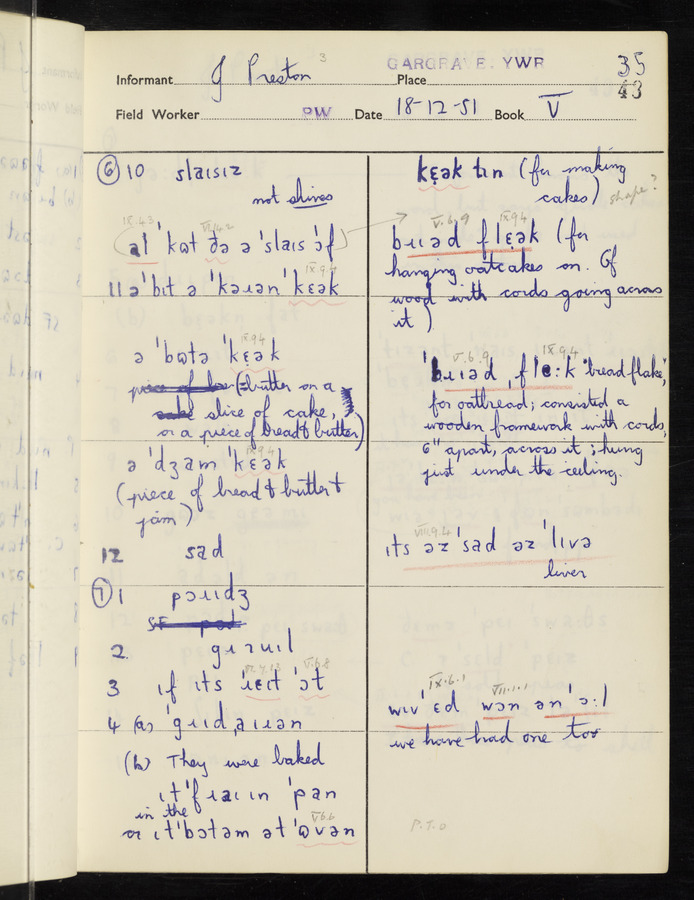 GARGRAVE. YWR
35
43
Informant J Preston 3 Place
Field Worker PW Date 18-12-51 Book V
⑥ 10 slaɪsɪz
not shives
IX.4.3 VI.4.2
(al 'kʊt ðə ə 'slaɪs 'ɔf)
IX.9.4
11 ə 'bɪt ə 'kəɹən 'kɛək
IX.9.4
ə 'bʊtə 'kɛək
(= butter on a
slice of cake,
or a piece of bread & butter)
IX.9.4
ə 'dʒam 'kɛək
(piece of bread & butter +
jam)
12 sad
⑦ 1 pɔɹɪdʒ
SF
2. gɹʊɪl
VI.4.12 V.6.8
3 ɪf ɪts 'ɹɛɪt 'ɔt
4 (a) 'gɹɪd,aɪɹən
(b) They were baked
ɪt 'fɹaɪɪn 'pan
in the
V.6.6
or ɪt 'bɔtəm ət 'ʊvən
kɛək tɪn (for making
cakes) shape?
V.6.9 IX.9.4
bɹɪəd flɛək (for
hanging oatcakes on. Of
wood with cords going across
it)
V.6.9 IX.9.4
'bɹɪəd ,fle:k "breadflake",
for oatbread; consisted a
wooden framework with cords,
6" apart, across it; hung
just under the ceiling.
VIII.9.4
ɪts əz 'sad əz 'lɪvə
liver
IX.6.1 VII.1.1
wɪv 'ɛd wɔn ən 'ɔ:l
we have had one too
P.T.O